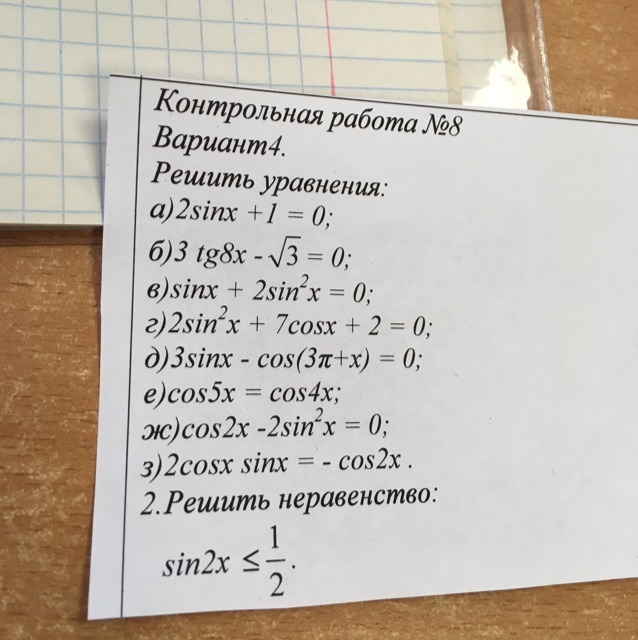 Контрольная работа №8
Вариант4.
Решить уравнения:
а)2sinx +1 = 0;
б)3 tg8x - √3 = 0;
в)sinx + 2sin²x = 0;
г)2sin²x + 7cosx + 2 = 0;
д)3sinx - cos(3π+x) = 0;
е)cos5x = cos4x;
ж)cos2x -2sin²x = 0;
з)2cosx sinx = - cos2x .
2.Решить неравенство:
sin2x ≤ 1/2.